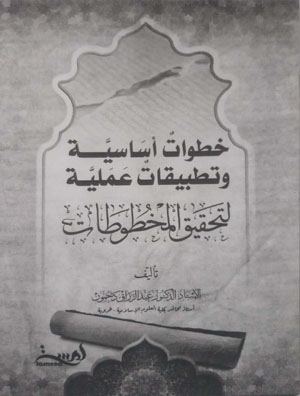 خطوات أساسيَّة
وتطبيقات عَمليَّة
لتحقيق المخطوطات
تأليف
الأستاذ الدكتور عبد الرزاق
أستاذ محاضر كلية العلوم الإسلامية - خروبة